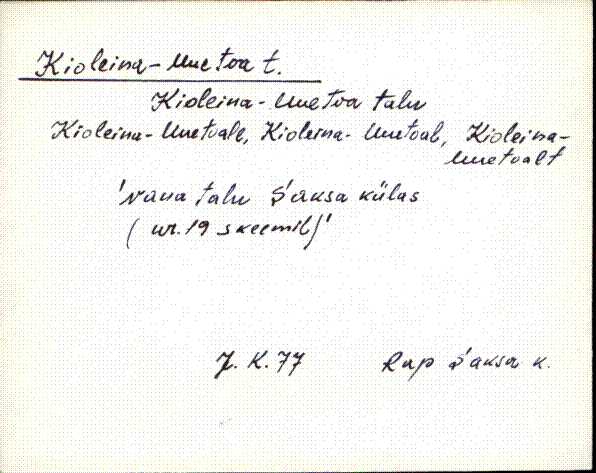 Kioleina-Uuetoa t.
Kioleina-Uuetoa talu
Kioleina-Uuetoale, Kioleina-Uuetoal, Kioleina-
Uuetoalt
'vana talu S'aksa külas
(nr. 19 skeemil)'
J. K. 77 Rap S'aksa k.